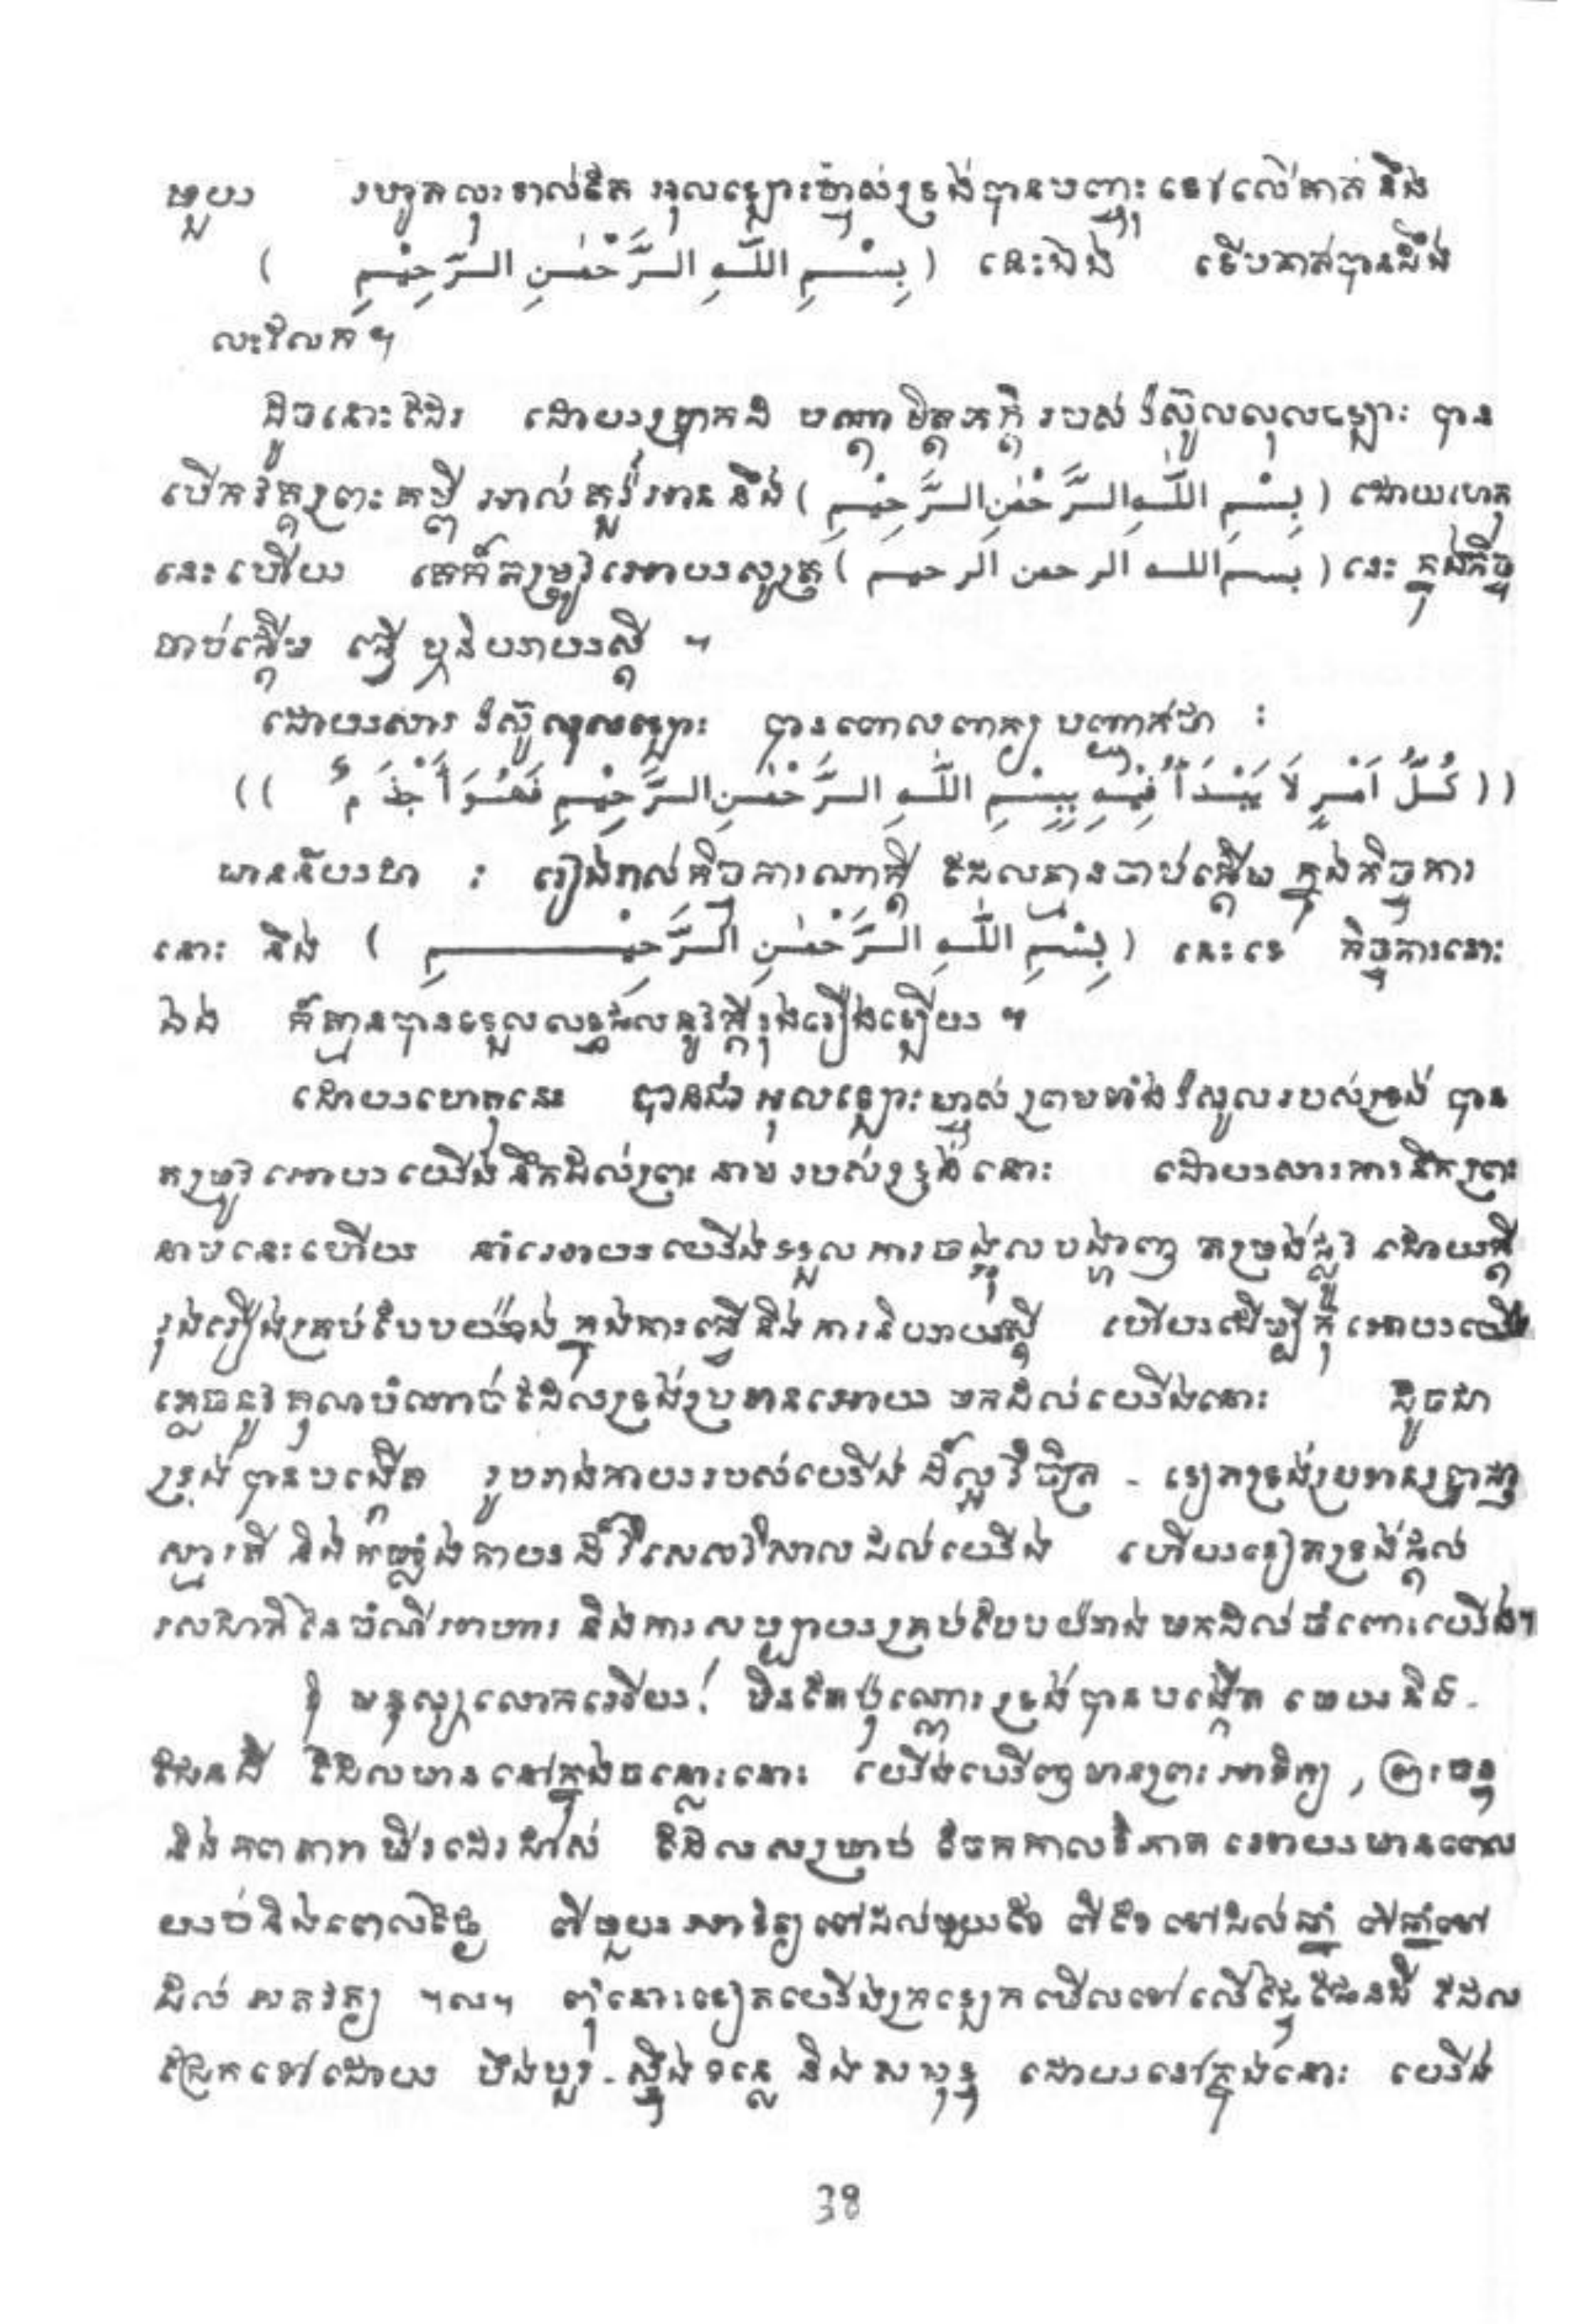 មួយ រហូតលុះទាល់តែ អុលឡោះម្ចាស់ទ្រង់បានបញ្ចុះ នៅលើគាត់ នឹង
( بِسْمِ اللَّهِ الرَّحْمٰنِ الرَّحِيْمِ ) នេះឯង ទើបគាត់បាននឹង
លះលែក ។
ដូចនោះដែរ ដោយប្រាកដ បណ្តាមិត្តភក្តិ របស់ រ៉ស៊ូលលុលឡោះ បាន
បើកវគ្គព្រះគម្ពី អាល់គួរអាន នឹង ( بِسْمِ اللَّهِ الرَّحْمٰنِ الرَّحِيْمِ ) ដោយហេតុ
នេះហើយ គេក៏តម្រូវអោយសូត្រ ( بسم الله الرحمن الرحيم ) នេះ ក្នុងកិច្ច
ចាប់ផ្តើម ធ្វើ ឬនិយាយស្តី ។
ដោយសារ រ៉ស៊ូលុលឡោះ បានពោលពាក្យ បញ្ជាក់ថា :
(( كُلُّ اَمْرٍ لَا يَبْدَأُ فِيْهِ بِبِسْمِ اللَّهِ الرَّحْمٰنِ الرَّحِيْمِ فَهُوَ أَجْذَمُ ))
មានន័យថា : រឿងរាល់កិច្ចការណាក្តី ដែលគ្មានចាប់ផ្តើម ក្នុងកិច្ចការ
នោះ នឹង ( بِسْمِ اللَّهِ الرَّحْمٰنِ الرَّحِيْمِ ) នេះទេ កិច្ចការនោះ
ឯង ក៏គ្មានបានទទួលលទ្ធផលនូវក្តីរុងរឿងឡើយ ។
ដោយហេតុនេះ បានជាអុលឡោះម្ចាស់ ព្រមទាំង រ៉សូលរបស់ទ្រង់ បាន
តម្រូវអោយយើងនឹកដល់ព្រះនាមរបស់ទ្រង់នោះ ដោយសារការនឹកព្រះ
នាមនេះហើយ នាំអោយយើងទទួលការចង្អុលបង្ហាញ តម្រង់ផ្លូវ ដោយក្តី
រុងរឿងគ្រប់បែបយ៉ាង ក្នុងការធ្វើនិងការនិយាយស្តី ហើយដើម្បីកុំអោយយើង
ភ្លេចនូវគុណបំណាច់ដែលទ្រង់ប្រទានអោយ មកដល់យើងនោះ ដូចជា
ទ្រង់បានបង្កើត រូបរាងកាយរបស់យើង ដ៏ល្អវិចិត្រ - ទៀតទ្រង់ប្រទានប្រាជ្ញា
ស្មារតី និងកម្លាំងកាយដ៏វិសេសវិសាលដល់យើង ហើយទៀតទ្រង់ផ្តល់
រសជាតិនៃចំណីអាហារ និងការសប្បាយគ្រប់បែបយ៉ាង មកដល់ចំពោះយើង។
ឱ មនុស្សលោកអើយ! មិនតែប៉ុណ្ណោះ ទ្រង់បានបង្កើត មេឃនិង-
ផែនដី ដែលមាននៅក្នុងចន្លោះនោះ យើងឃើញមានព្រះអាទិត្យ , ព្រះចន្ទ
និងភពតារា ដែលសម្រាប់ បែកកាលវិភាគ អោយមានពេល
យប់និងពេលថ្ងៃ ពីមួយអាទិត្យទៅដល់មួយខែ ពីខែទៅដល់ឆ្នាំ ពីឆ្នាំទៅ
ដល់ សតវត្ស ។ល។ ពុំនោះទៀតយើងក្រឡេកមើលទៅលើផ្ទៃផែនដី ដែល
ជ្រែកទៅដោយ បឹងបួរ - ស្ទឹង ទន្លេ និងសមុទ្រ ដោយនៅក្នុងនោះ យើង
38